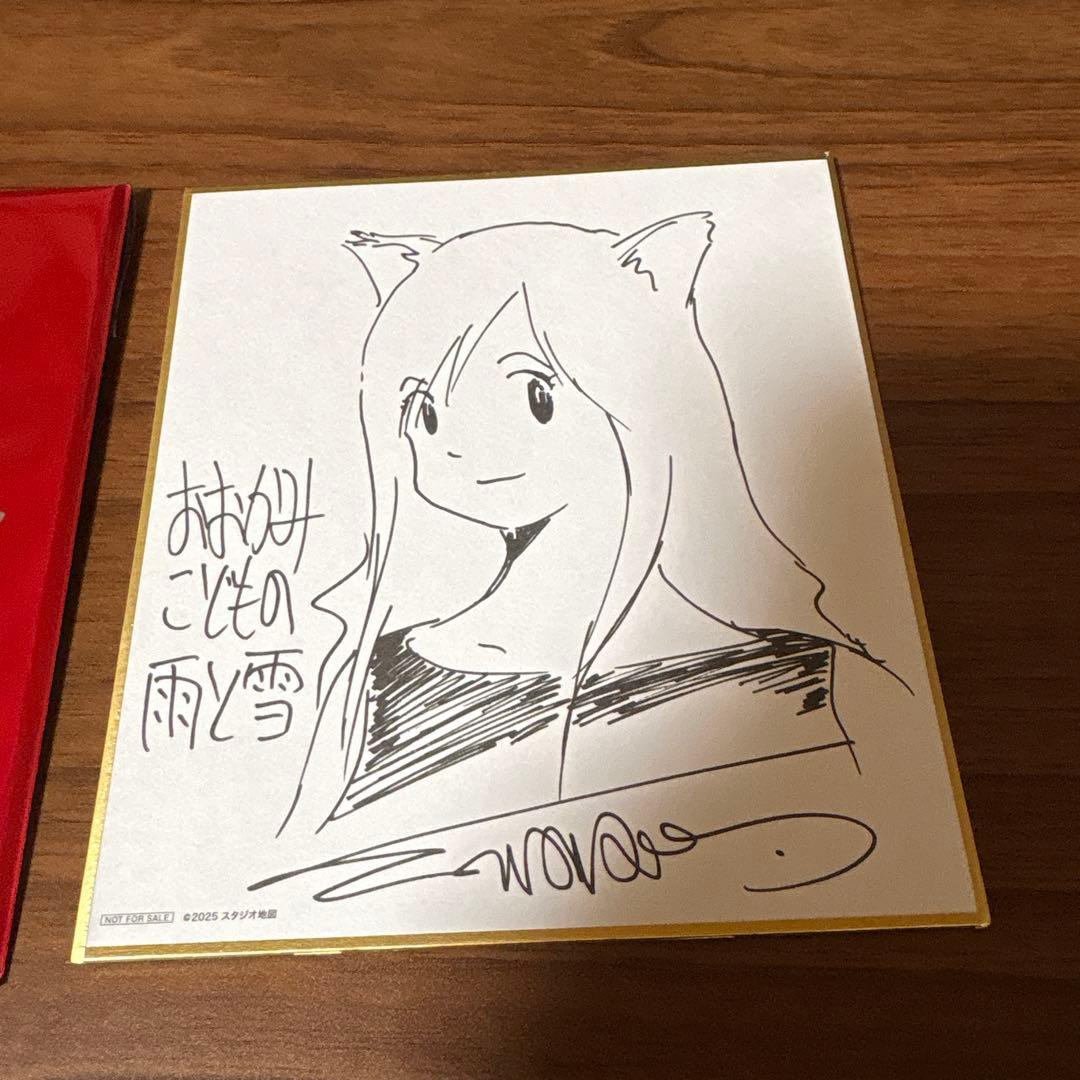 おおかみ
こどもの
雨と雪
NOT FOR SALE ©2025 スタジオ地図